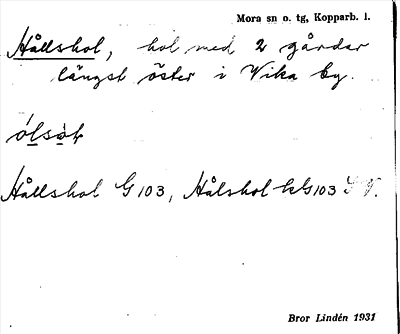 Mora sn o. tg, Kopparb. l.
Hållshol, hol med 2 gårdar
längst öster i Vika by.
Hållshol G 103, Hålshol kG103
Bror Lindén 1931